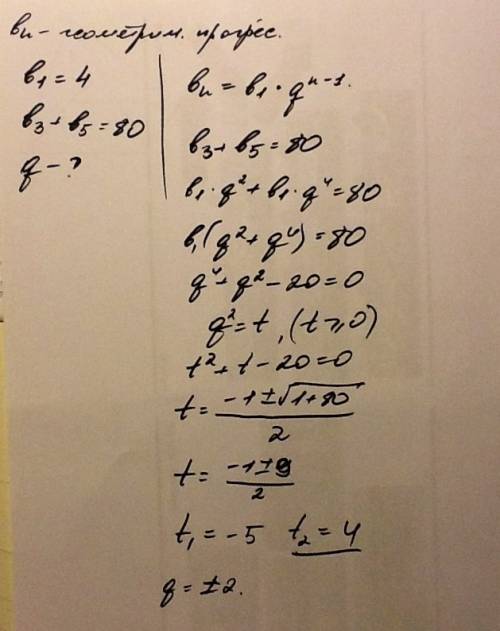 вn - геометрич. прогрес.
в1 = 4
в3 + в5 = 80
q - ?
вn = в1 · q^n-1.
в3 + в5 = 80
в1 · q² + в1 · q⁴ = 80
в1 (q² + q⁴) = 80
q⁴ + q² - 20 = 0
q² = t, (t ≥ 0)
t² + t - 20 = 0
t = (-1 ± √1+80) / 2
t = (-1 ± 9) / 2
t1 = -5 t2 = 4
q = ±2.